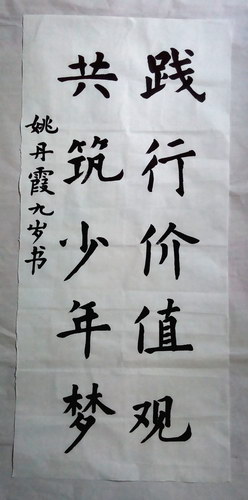 践行价值观
共筑少年梦
姚丹霞九岁书